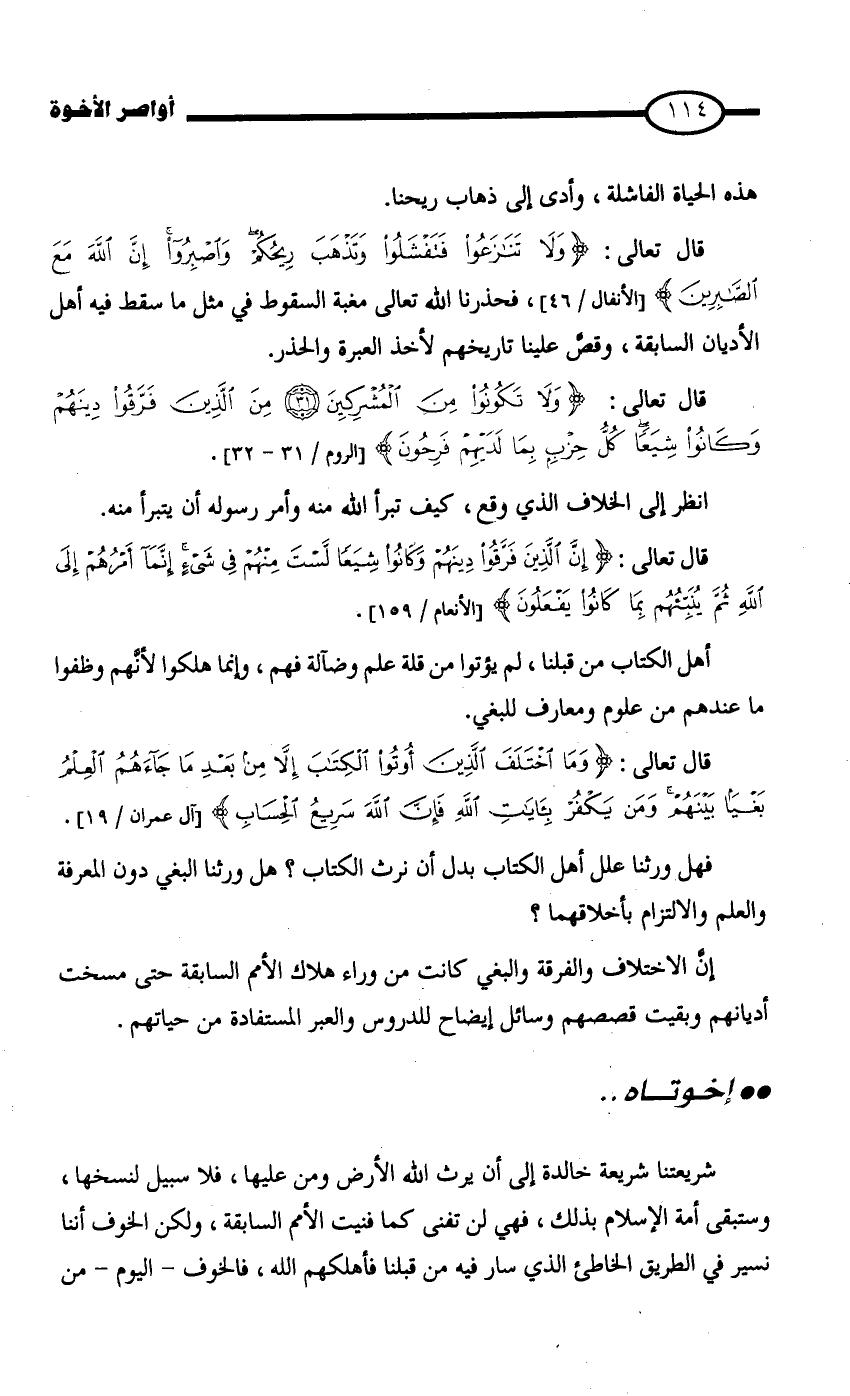 ١١٤ أواصر الأخوة
هذه الحياة الفاشلة ، وأدى إلى ذهاب ريحنا.
قال تعالى : ﴿ وَلَا تَنَٰزَعُوا۟ فَتَفْشَلُوا۟ وَتَذْهَبَ رِيحُكُمْ ۖ وَٱصْبِرُوٓا۟ ۚ إِنَّ ٱللَّهَ مَعَ
ٱلصَّٰبِرِينَ ﴾ [الأنفال / ٤٦] ، فحذرنا الله تعالى مغبة السقوط في مثل ما سقط فيه أهل
الأديان السابقة ، وقصَّ علينا تاريخهم لأخذ العبرة والحذر.
قال تعالى : ﴿ وَلَا تَكُونُوا۟ مِنَ ٱلْمُشْرِكِينَ ٣١ مِنَ ٱلَّذِينَ فَرَّقُوا۟ دِينَهُمْ
وَكَانُوا۟ شِيَعًا ۖ كُلُّ حِزْبٍۭ بِمَا لَدَيْهِمْ فَرِحُونَ ﴾ [الروم / ٣١ - ٣٢] .
انظر إلى الخلاف الذي وقع ، كيف تبرأ الله منه وأمر رسوله أن يتبرأ منه.
قال تعالى : ﴿ إِنَّ ٱلَّذِينَ فَرَّقُوا۟ دِينَهُمْ وَكَانُوا۟ شِيَعًا لَّسْتَ مِنْهُمْ فِى شَىْءٍ ۚ إِنَّمَآ أَمْرُهُمْ إِلَى
ٱللَّهِ ثُمَّ يُنَبِّئُهُم بِمَا كَانُوا۟ يَفْعَلُونَ ﴾ [الأنعام / ١٥٩] .
أهل الكتاب من قبلنا ، لم يؤتوا من قلة علم وضآلة فهم ، وإنما هلكوا لأنَّهم وظفوا
ما عندهم من علوم ومعارف للبغي.
قال تعالى : ﴿ وَمَا ٱخْتَلَفَ ٱلَّذِينَ أُوتُوا۟ ٱلْكِتَٰبَ إِلَّا مِنۢ بَعْدِ مَا جَآءَهُمُ ٱلْعِلْمُ
بَغْيًۢا بَيْنَهُمْ ۗ وَمَن يَكْفُرْ بِـَٔايَٰتِ ٱللَّهِ فَإِنَّ ٱللَّهَ سَرِيعُ ٱلْحِسَابِ ﴾ [آل عمران / ١٩] .
فهل ورثنا علل أهل الكتاب بدل أن نرث الكتاب ؟ هل ورثنا البغي دون المعرفة
والعلم والالتزام بأخلاقهما ؟
إنَّ الاختلاف والفرقة والبغي كانت من وراء هلاك الأمم السابقة حتى مسخت
أديانهم وبقيت قصصهم وسائل إيضاح للدروس والعبر المستفادة من حياتهم .
●● إخـوتـــاه ..
شريعتنا شريعة خالدة إلى أن يرث الله الأرض ومن عليها ، فلا سبيل لنسخها ،
وستبقى أمة الإسلام بذلك ، فهي لن تفنى كما فنيت الأمم السابقة ، ولكن الخوف أننا
نسير في الطريق الخاطئ الذي سار فيه من قبلنا فأهلكهم الله ، فالخوف - اليوم - من